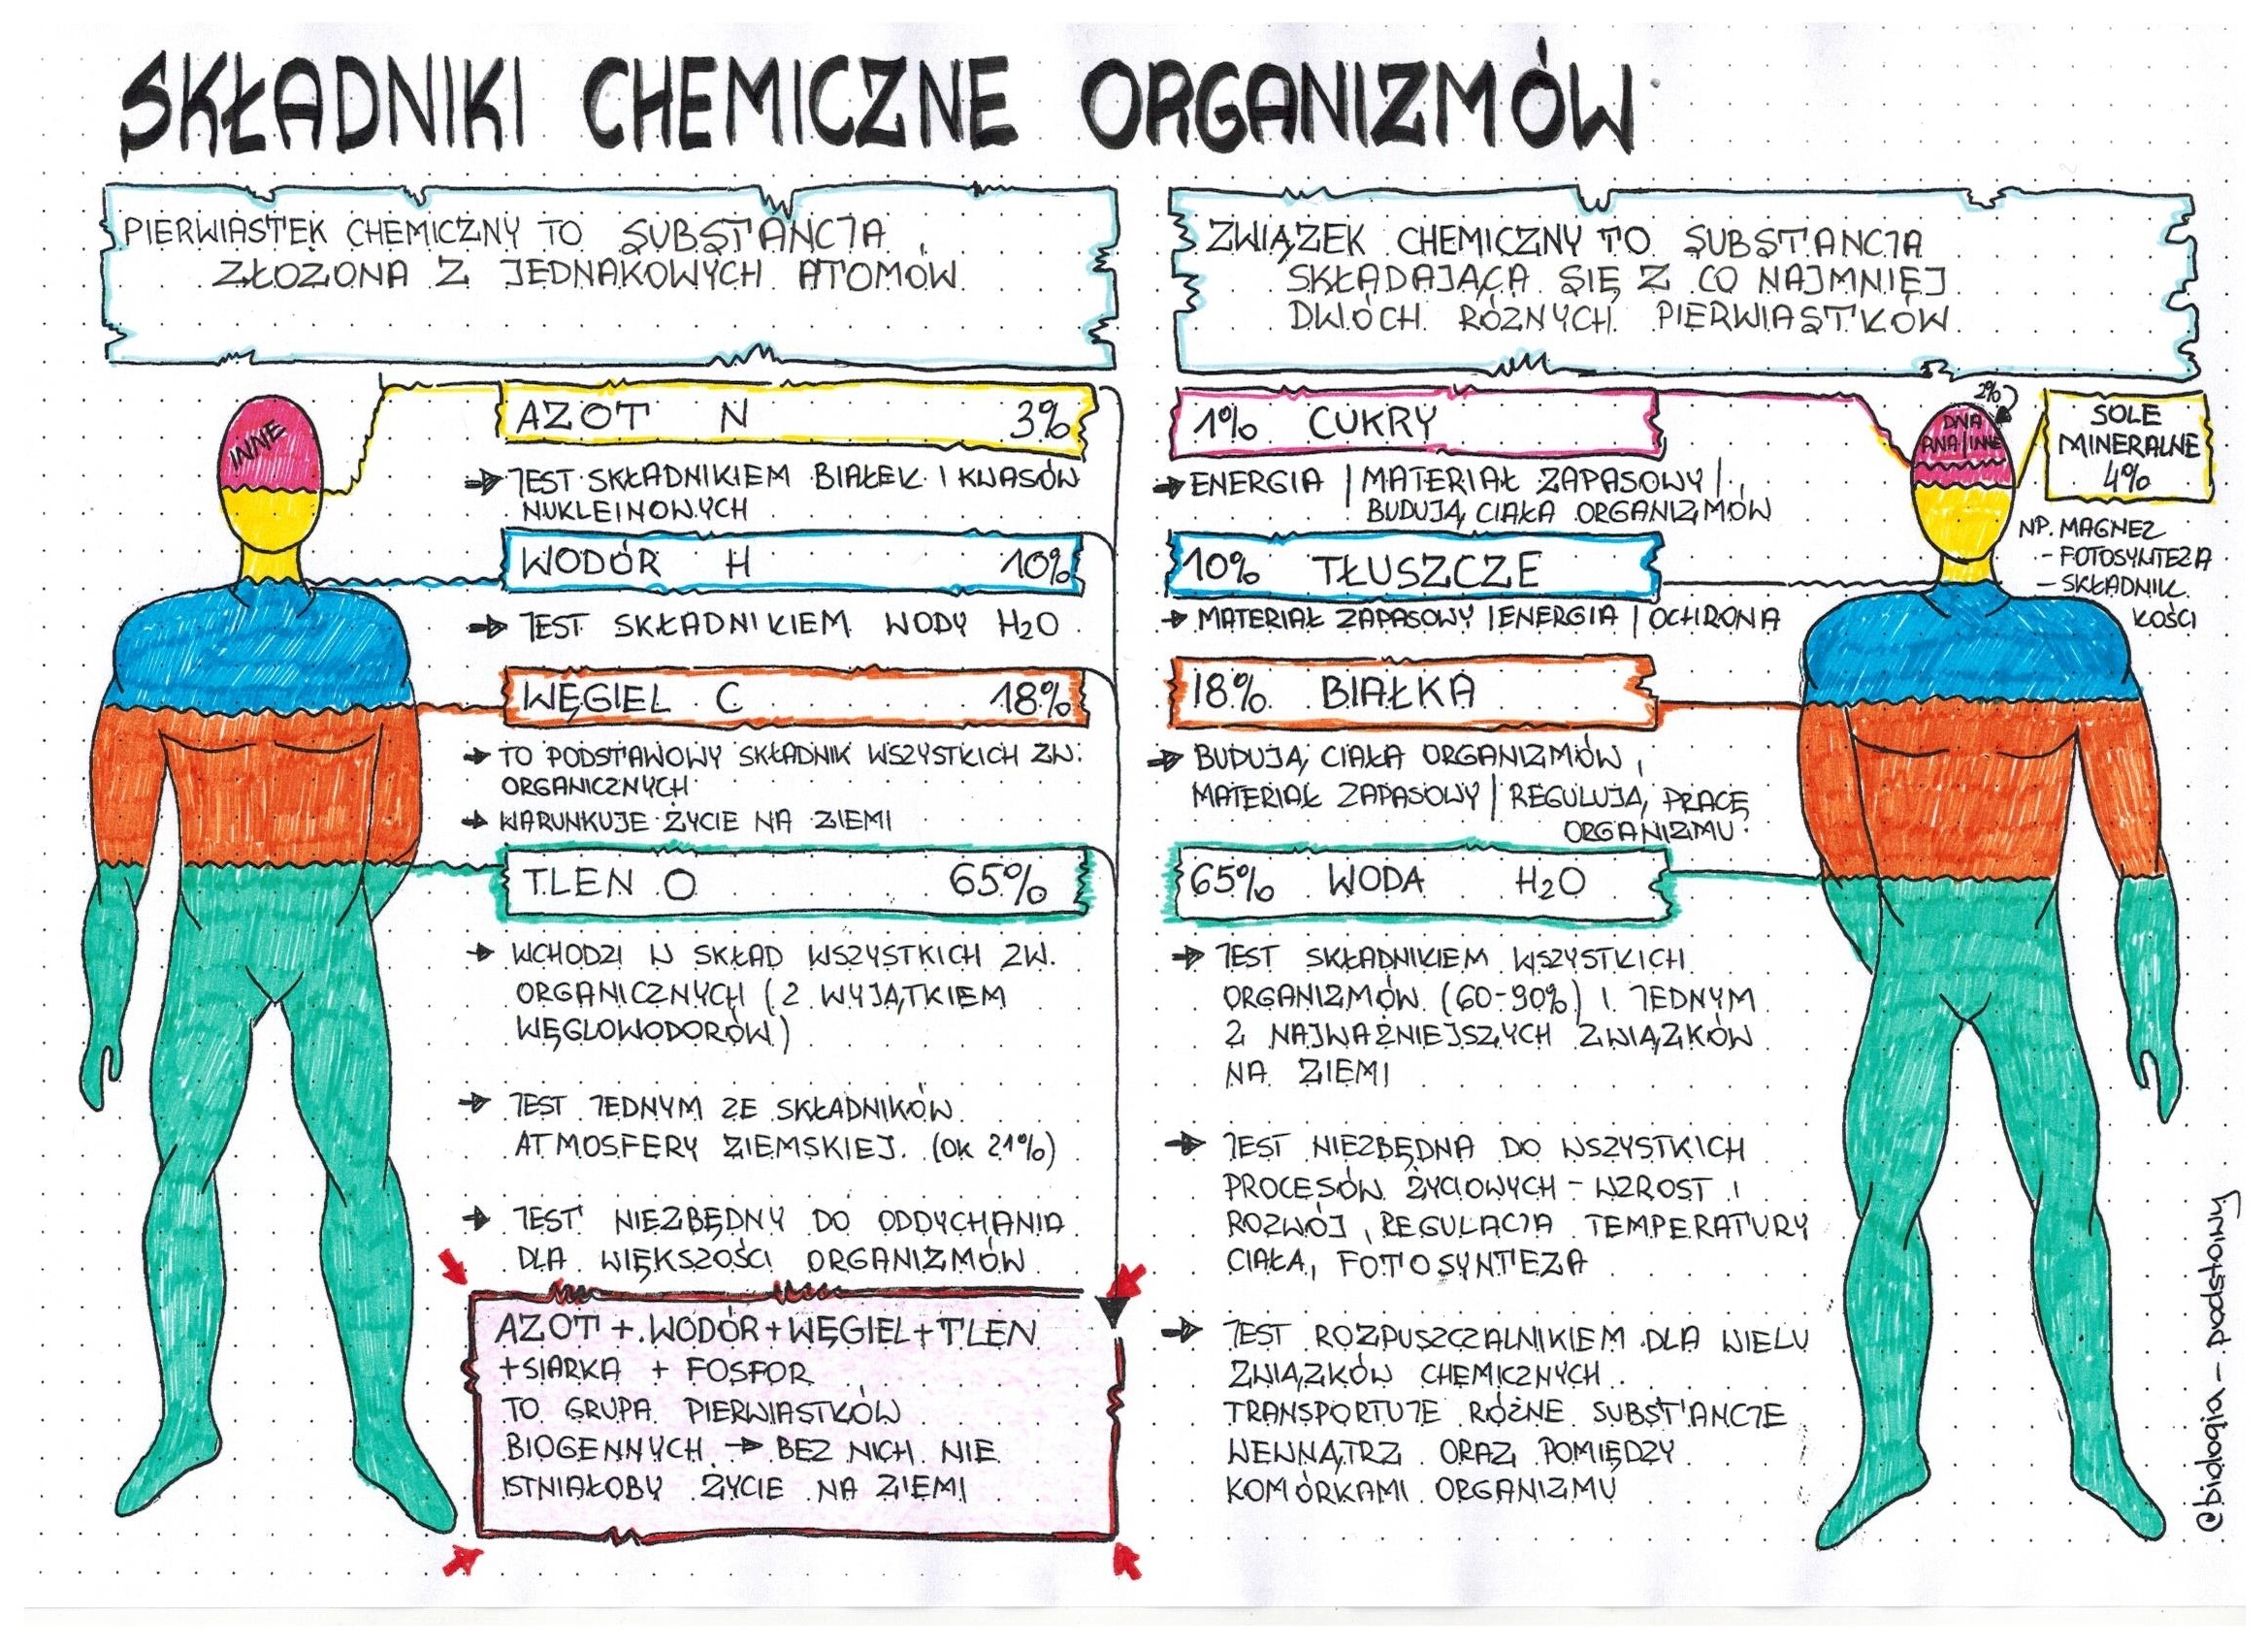 SKŁADNIKI CHEMICZNE ORGANIZMÓW
PIERWIASTEK CHEMICZNY TO SUBSTANCJA
ZŁOŻONA Z JEDNAKOWYCH ATOMÓW
ZWIĄZEK CHEMICZNY TO SUBSTANCJA
SKŁADAJĄCA SIĘ Z CO NAJMNIEJ
DWÓCH RÓŻNYCH PIERWIASTKÓW
INNE
AZOT N 3%
JEST SKŁADNIKIEM BIAŁEK I KWASÓW
NUKLEINOWYCH
WODÓR H 10%
JEST SKŁADNIKIEM WODY H₂O
WĘGIEL C 18%
TO PODSTAWOWY SKŁADNIK WSZYSTKICH ZW.
ORGANICZNYCH
WARUNKUJE ŻYCIE NA ZIEMI
TLEN O 65%
WCHODZI W SKŁAD WSZYSTKICH ZW.
ORGANICZNYCH (Z WYJĄTKIEM
WĘGLOWODORÓW)
JEST JEDNYM ZE SKŁADNIKÓW
ATMOSFERY ZIEMSKIEJ. (OK 21%)
JEST NIEZBĘDNY DO ODDYCHANIA
DLA WIĘKSZOŚCI ORGANIZMÓW
AZOT + WODÓR + WĘGIEL + TLEN
+ SIARKA + FOSFOR
TO GRUPA PIERWIASTKÓW
BIOGENNYCH → BEZ NICH NIE
ISTNIAŁOBY ŻYCIE NA ZIEMI
1% CUKRY
ENERGIA | MATERIAŁ ZAPASOWY |
BUDUJĄ CIAŁA ORGANIZMÓW
10% TŁUSZCZE
MATERIAŁ ZAPASOWY | ENERGIA | OCHRONA
18% BIAŁKA
BUDUJĄ CIAŁA ORGANIZMÓW,
MATERIAŁ ZAPASOWY | REGULUJĄ PRACĘ
ORGANIZMU
65% WODA H₂O
JEST SKŁADNIKIEM WSZYSTKICH
ORGANIZMÓW (60-90%) I JEDNYM
Z NAJWAŻNIEJSZYCH ZWIĄZKÓW
NA ZIEMI
JEST NIEZBĘDNA DO WSZYSTKICH
PROCESÓW ŻYCIOWYCH - WZROST I
ROZWÓJ, REGULACJA TEMPERATURY
CIAŁA, FOTOSYNTEZA
JEST ROZPUSZCZALNIKIEM DLA WIELU
ZWIĄZKÓW CHEMICZNYCH.
TRANSPORTUJE RÓŻNE SUBSTANCJE
WEWNĄTRZ ORAZ POMIĘDZY
KOMÓRKAMI ORGANIZMU
2%
DNA
RNA | INNE
SOLE
MINERALNE
4%
NP. MAGNEZ
- FOTOSYNTEZA
- SKŁADNIK
KOŚCI
©biologia - podstawy